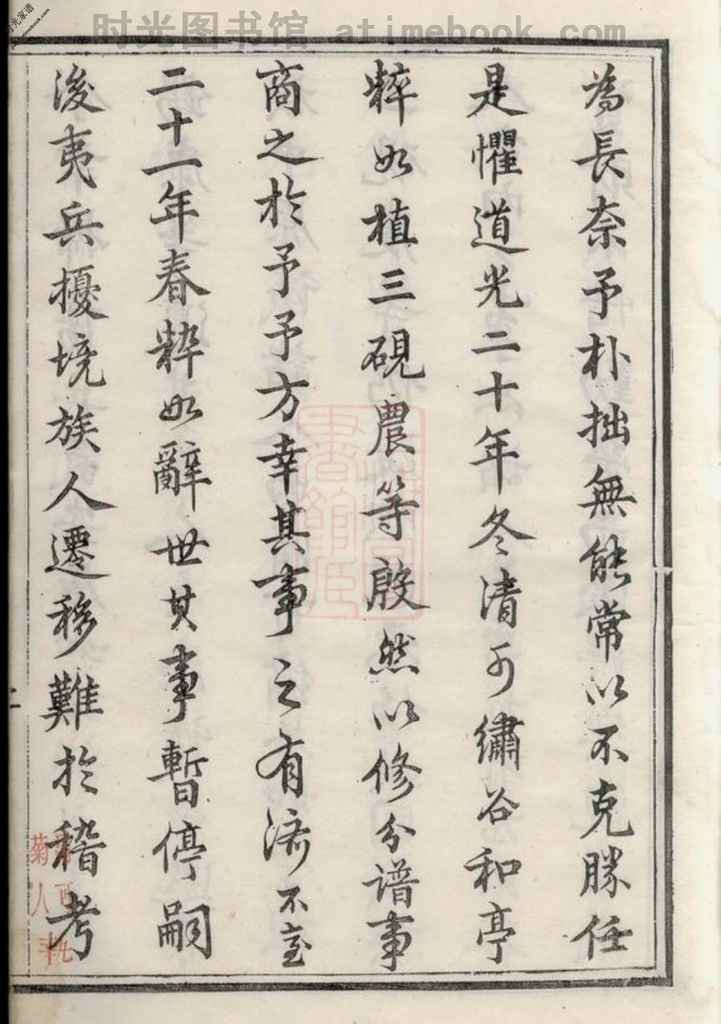 时光图书馆 atimebook.com
為長奈予朴拙無能常以不克勝任
是懼道光二十年冬清可繡谷和亭
粹如植三硯農等殷然以修分譜事
商之於予予方幸其事之有济不意
二十一年春粹如辭世其事暫停嗣
後夷兵擾境族人遷移難於稽考